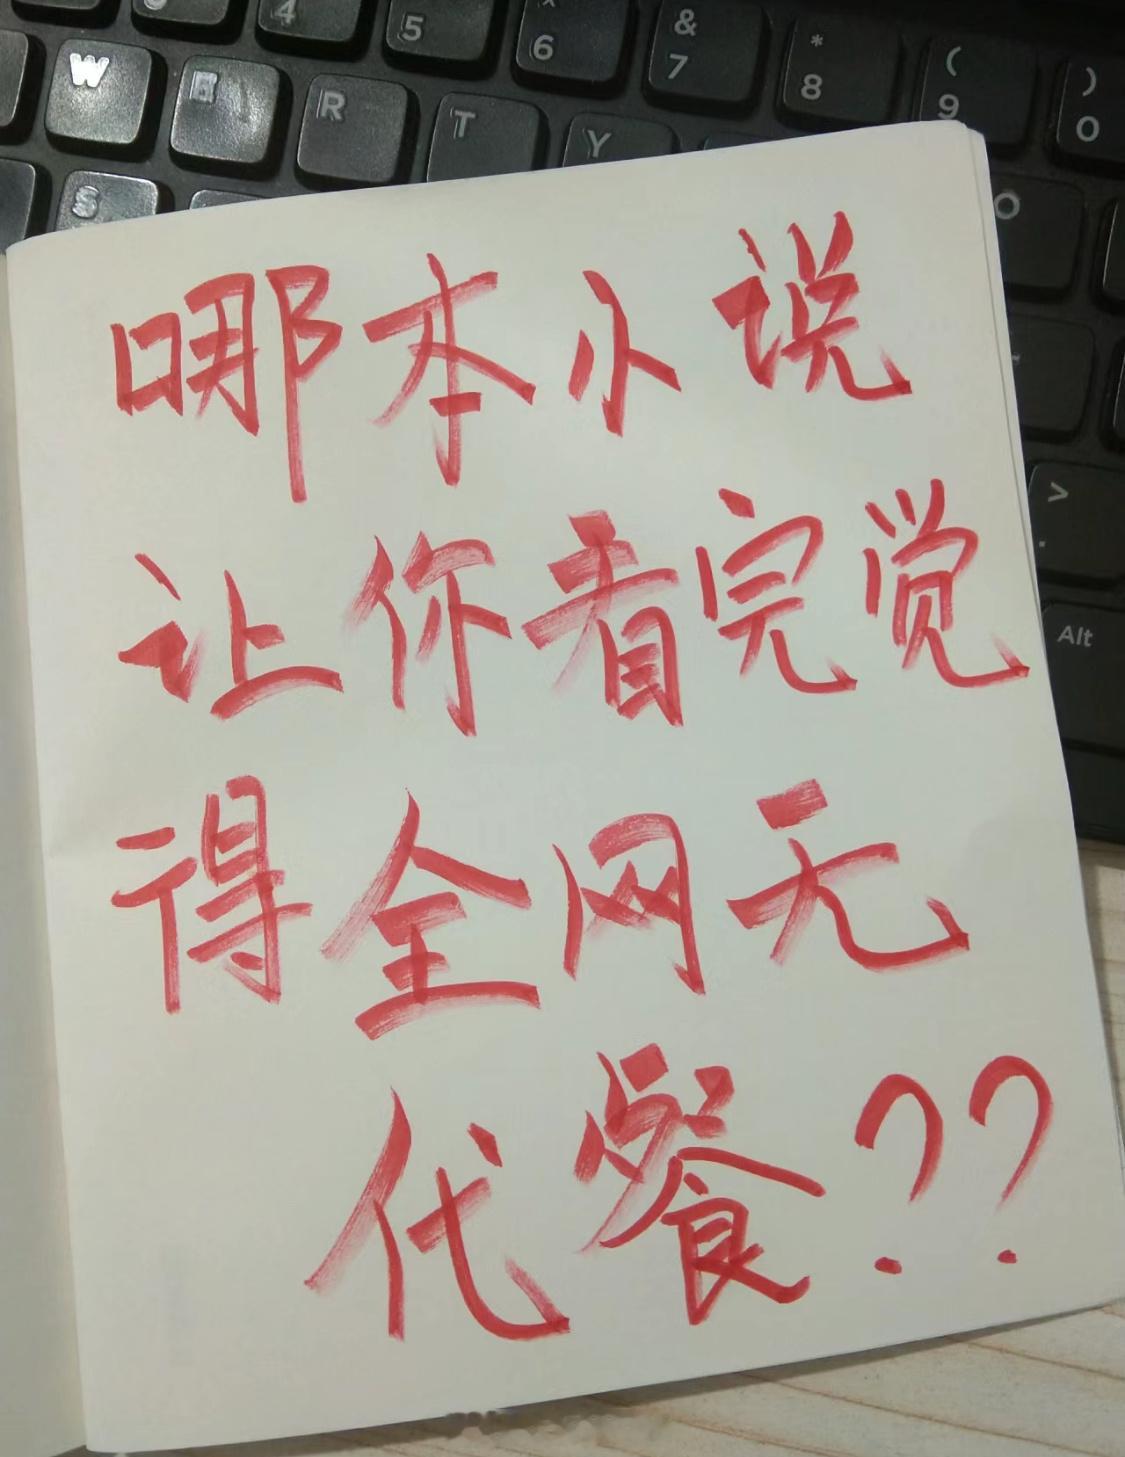 4 5 ^ 6 & 7 * 8 ( 9 ) 0
W E R T Y
S O
> .
Alt
哪本小说
让你看完觉
得全网无
代餐??